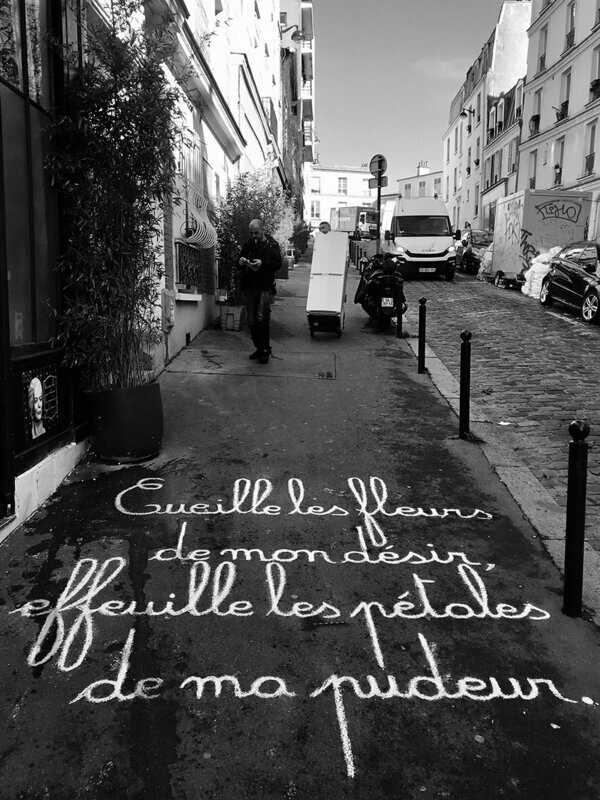 Cueille les fleurs
de mon désir,
effeuille les pétales
de ma pudeur.